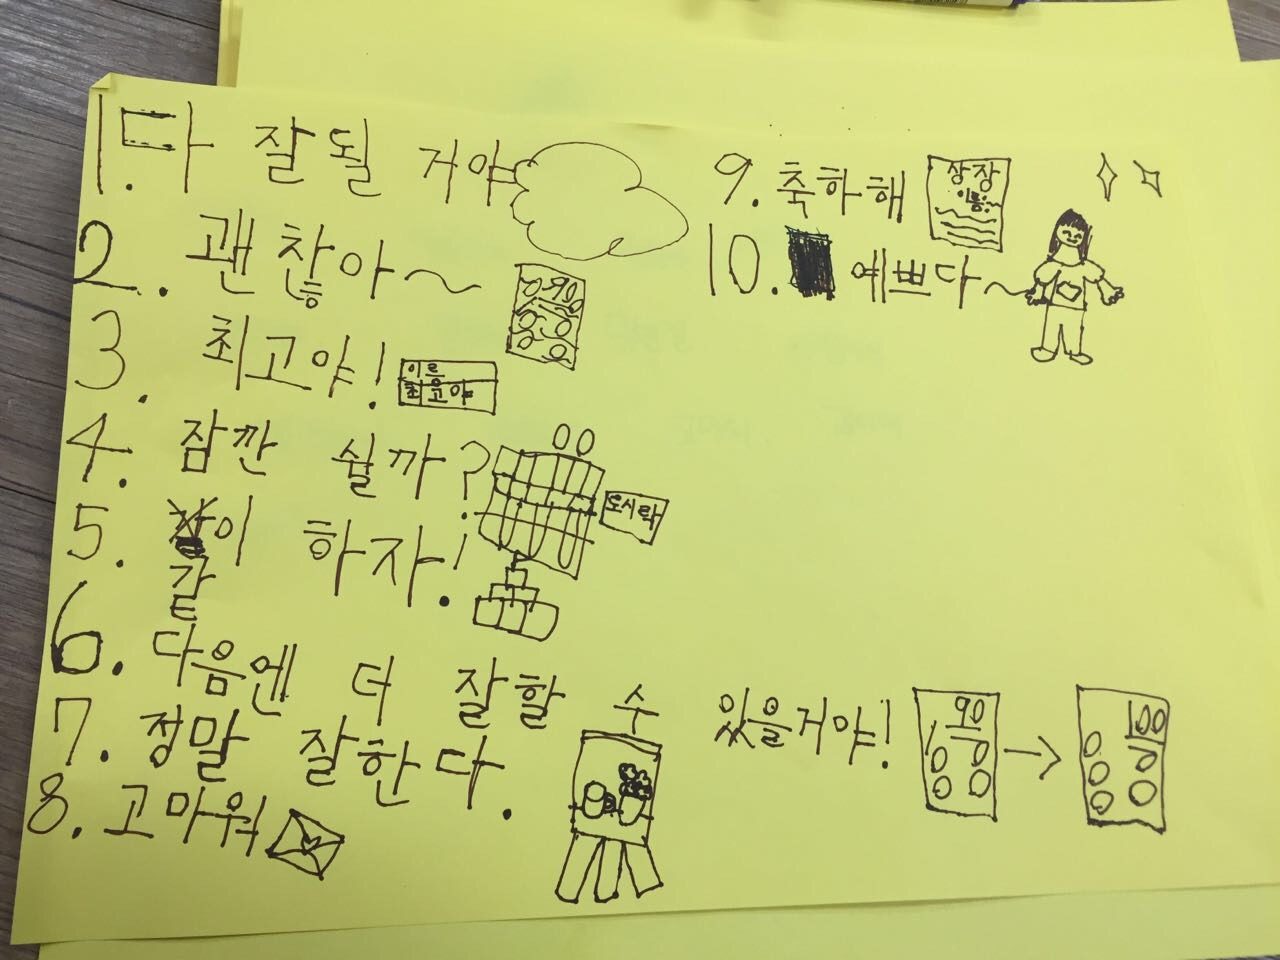 1. 다 잘될 거야
2. 괜찮아~
90
3. 최고야!
이름
최고야
4. 잠깐 쉴까?
도시락
5. 같이 하자!
6. 다음엔 더 잘할 수 있을거야!
90
100
7. 정말 잘한다.
8. 고마워
9. 축하해
상장
이름:
10. 예쁘다~